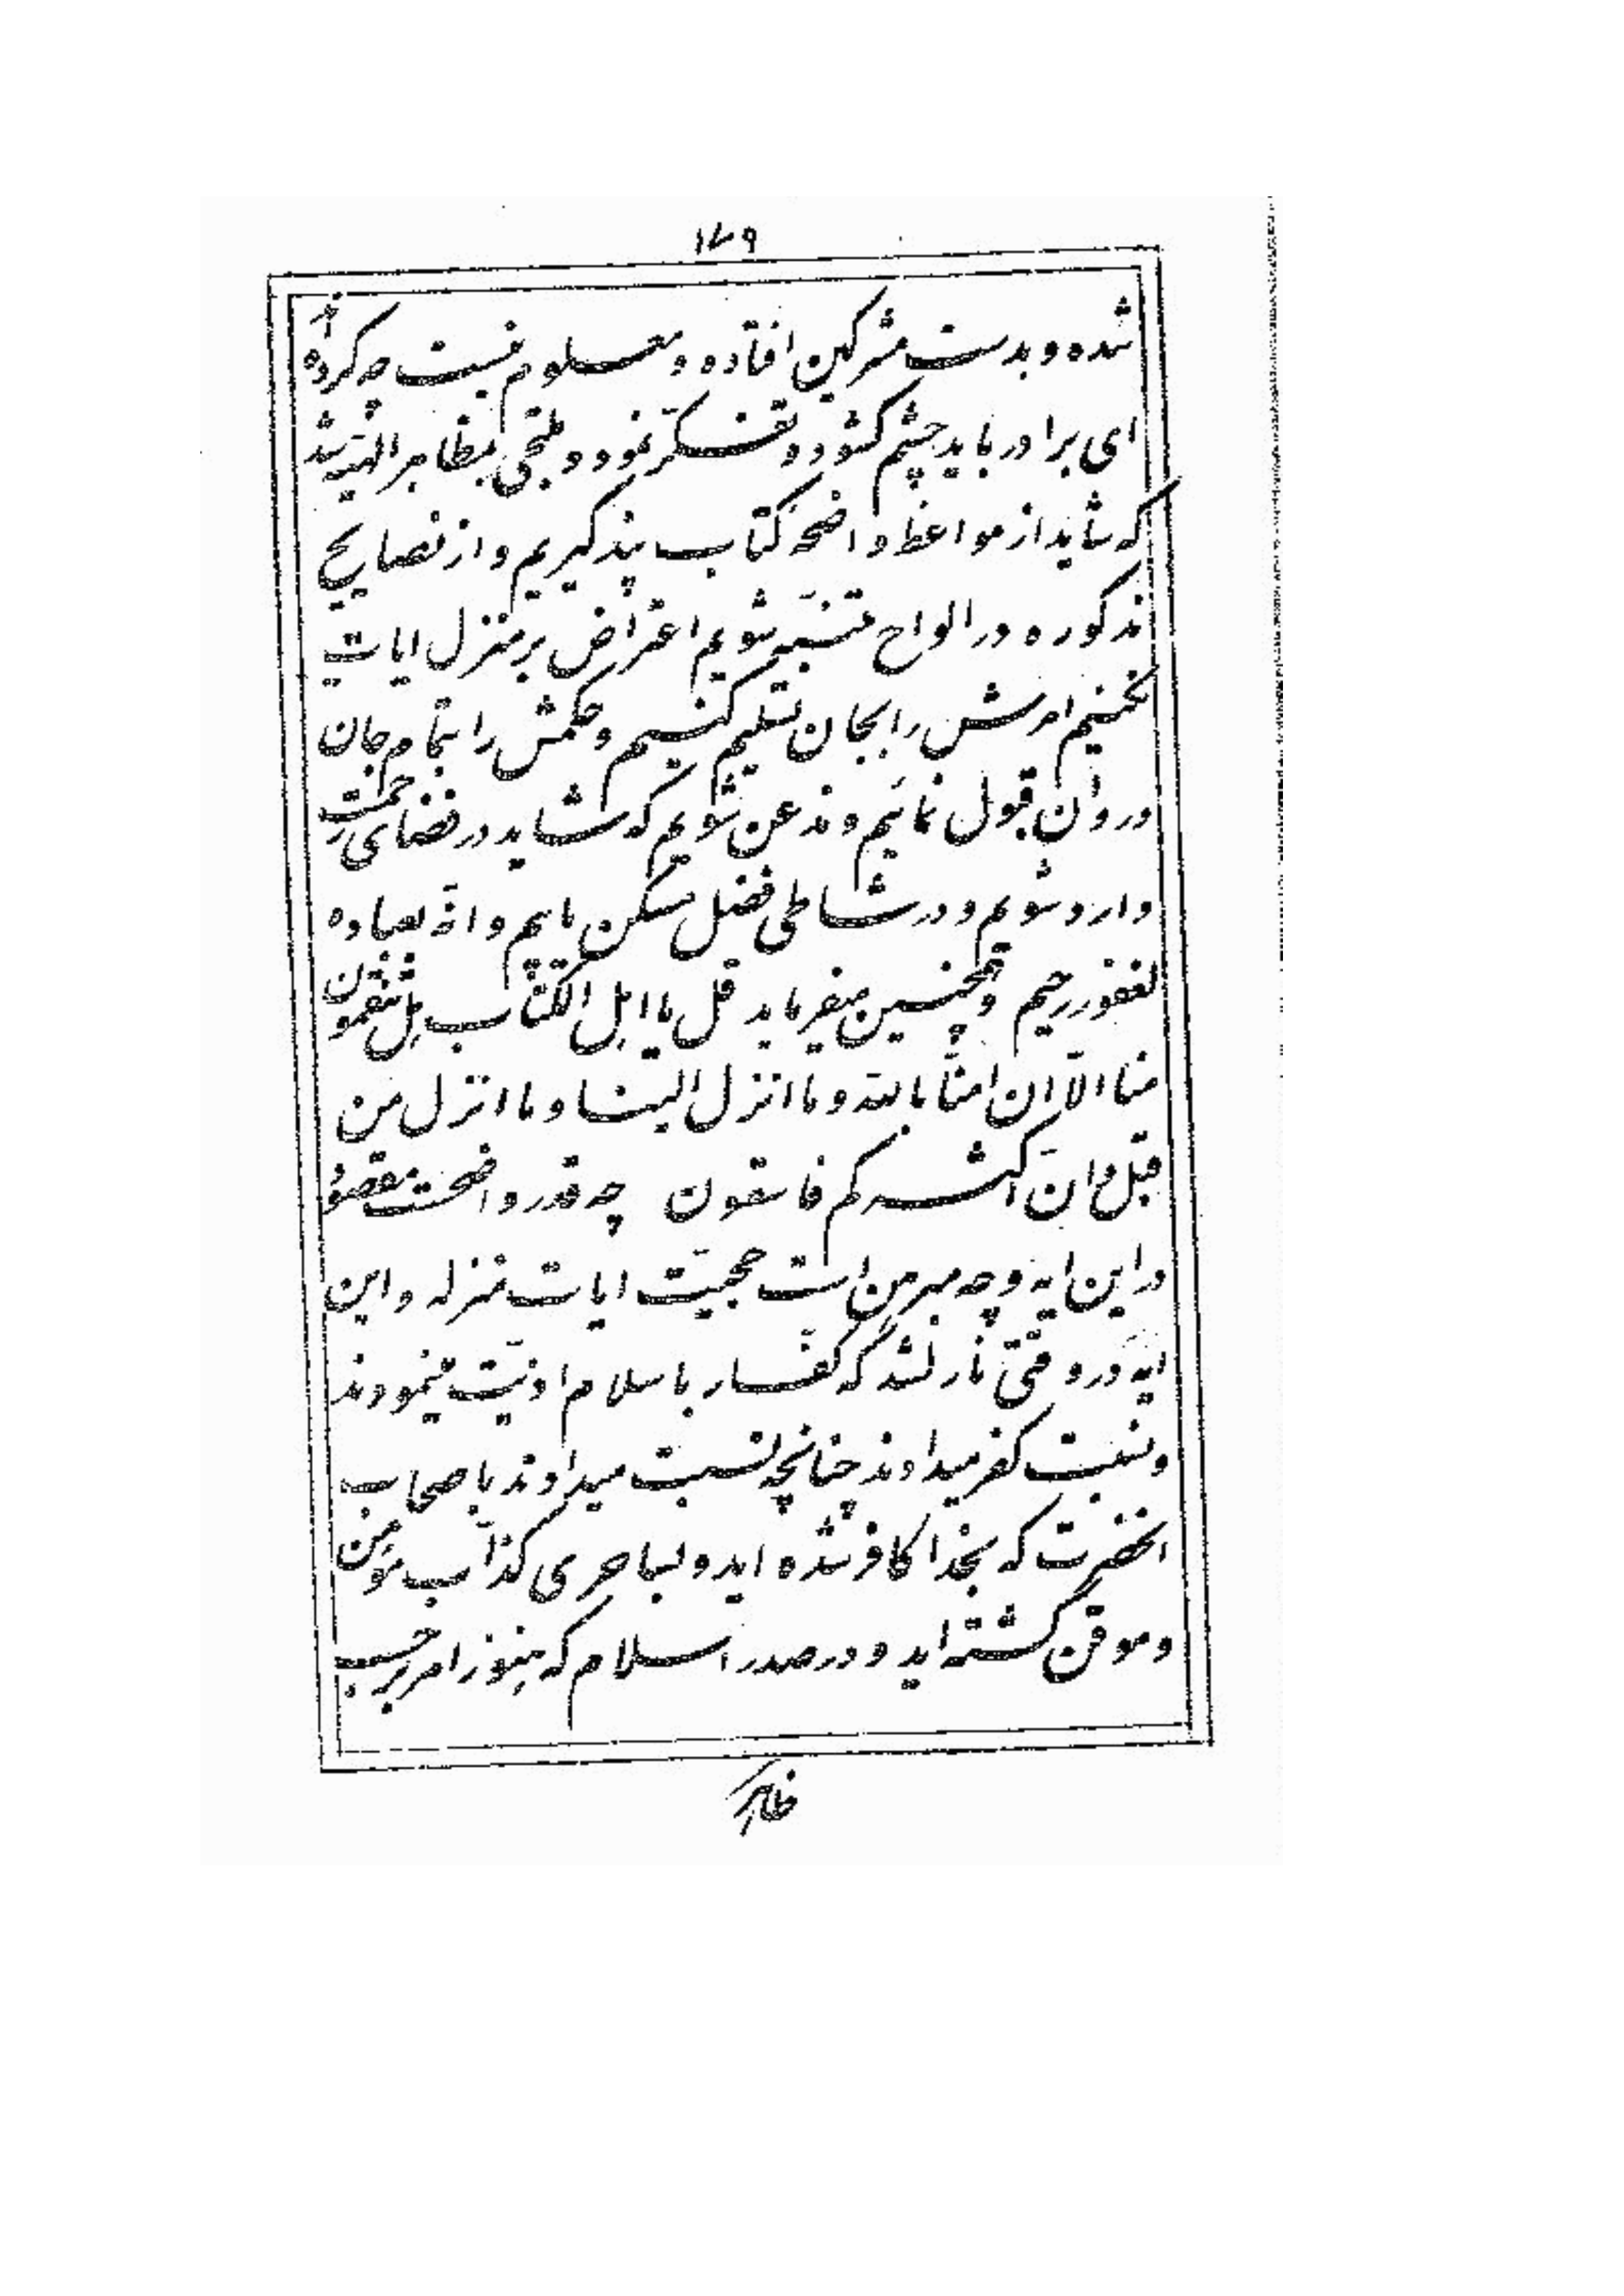 ۱۷۹
شده و بدست مشرکین افتاده و معلوم نیست چه کرده‌اند
ای برادر باید چشم کشود و تفکّر نمود و ملتجی بمظاهر الهیّه شد
که شاید از مواعظ واضحهٔ کتاب پند گیریم و از نصایح
مذکوره در الواح متنبّه شویم اعتراض بر منزل ایات
نکنیم امرش را بجان تسلیم کنیم و حکمش را بتمام جان
و روان قبول نمائیم و مذعن شویم که شاید در فضای رحمت
وارد شویم و در شاطی فضل مسکن یابیم و انّه بعباده
لغفور رحیم و همچنین میفرماید قل یا اهل الکتاب هل تنقمون
منا الّا ان امنّا بالله و ما انزل الینا و ما انزل من
قبل و انّ اکثرکم فاسقون چه قدر واضحست مقصود
در این ایه و چه مبرهن است حجیّت ایات منزله و این
ایه در وقتی نازل شد که کفّار باسلام اذیّت مینمودند
و نسبت کفر میدادند چنانچه نسبت میدادند باصحاب
انحضرت که بخدا کافر شده اید و بساحری کذّاب مؤمن
و موقن گشته اید و در صدر اسلام که هنوز امر بر حسب
ظاهر